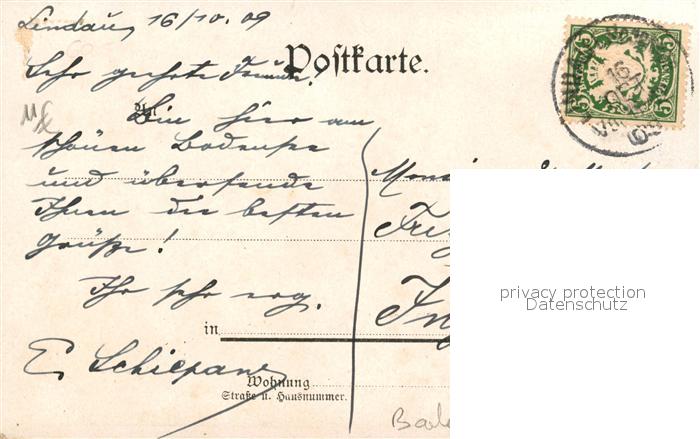 Lindau, 16/10.09
Postkarte.
Sehr geehrte
Bin hier am
schönen Bodensee
und übersende
Ihnen die besten
Grüße!
Ihr sehr erg.
E. Schiepan
in
Wohnung
Straße u. Hausnummer.
privacy protection
Datenschutz